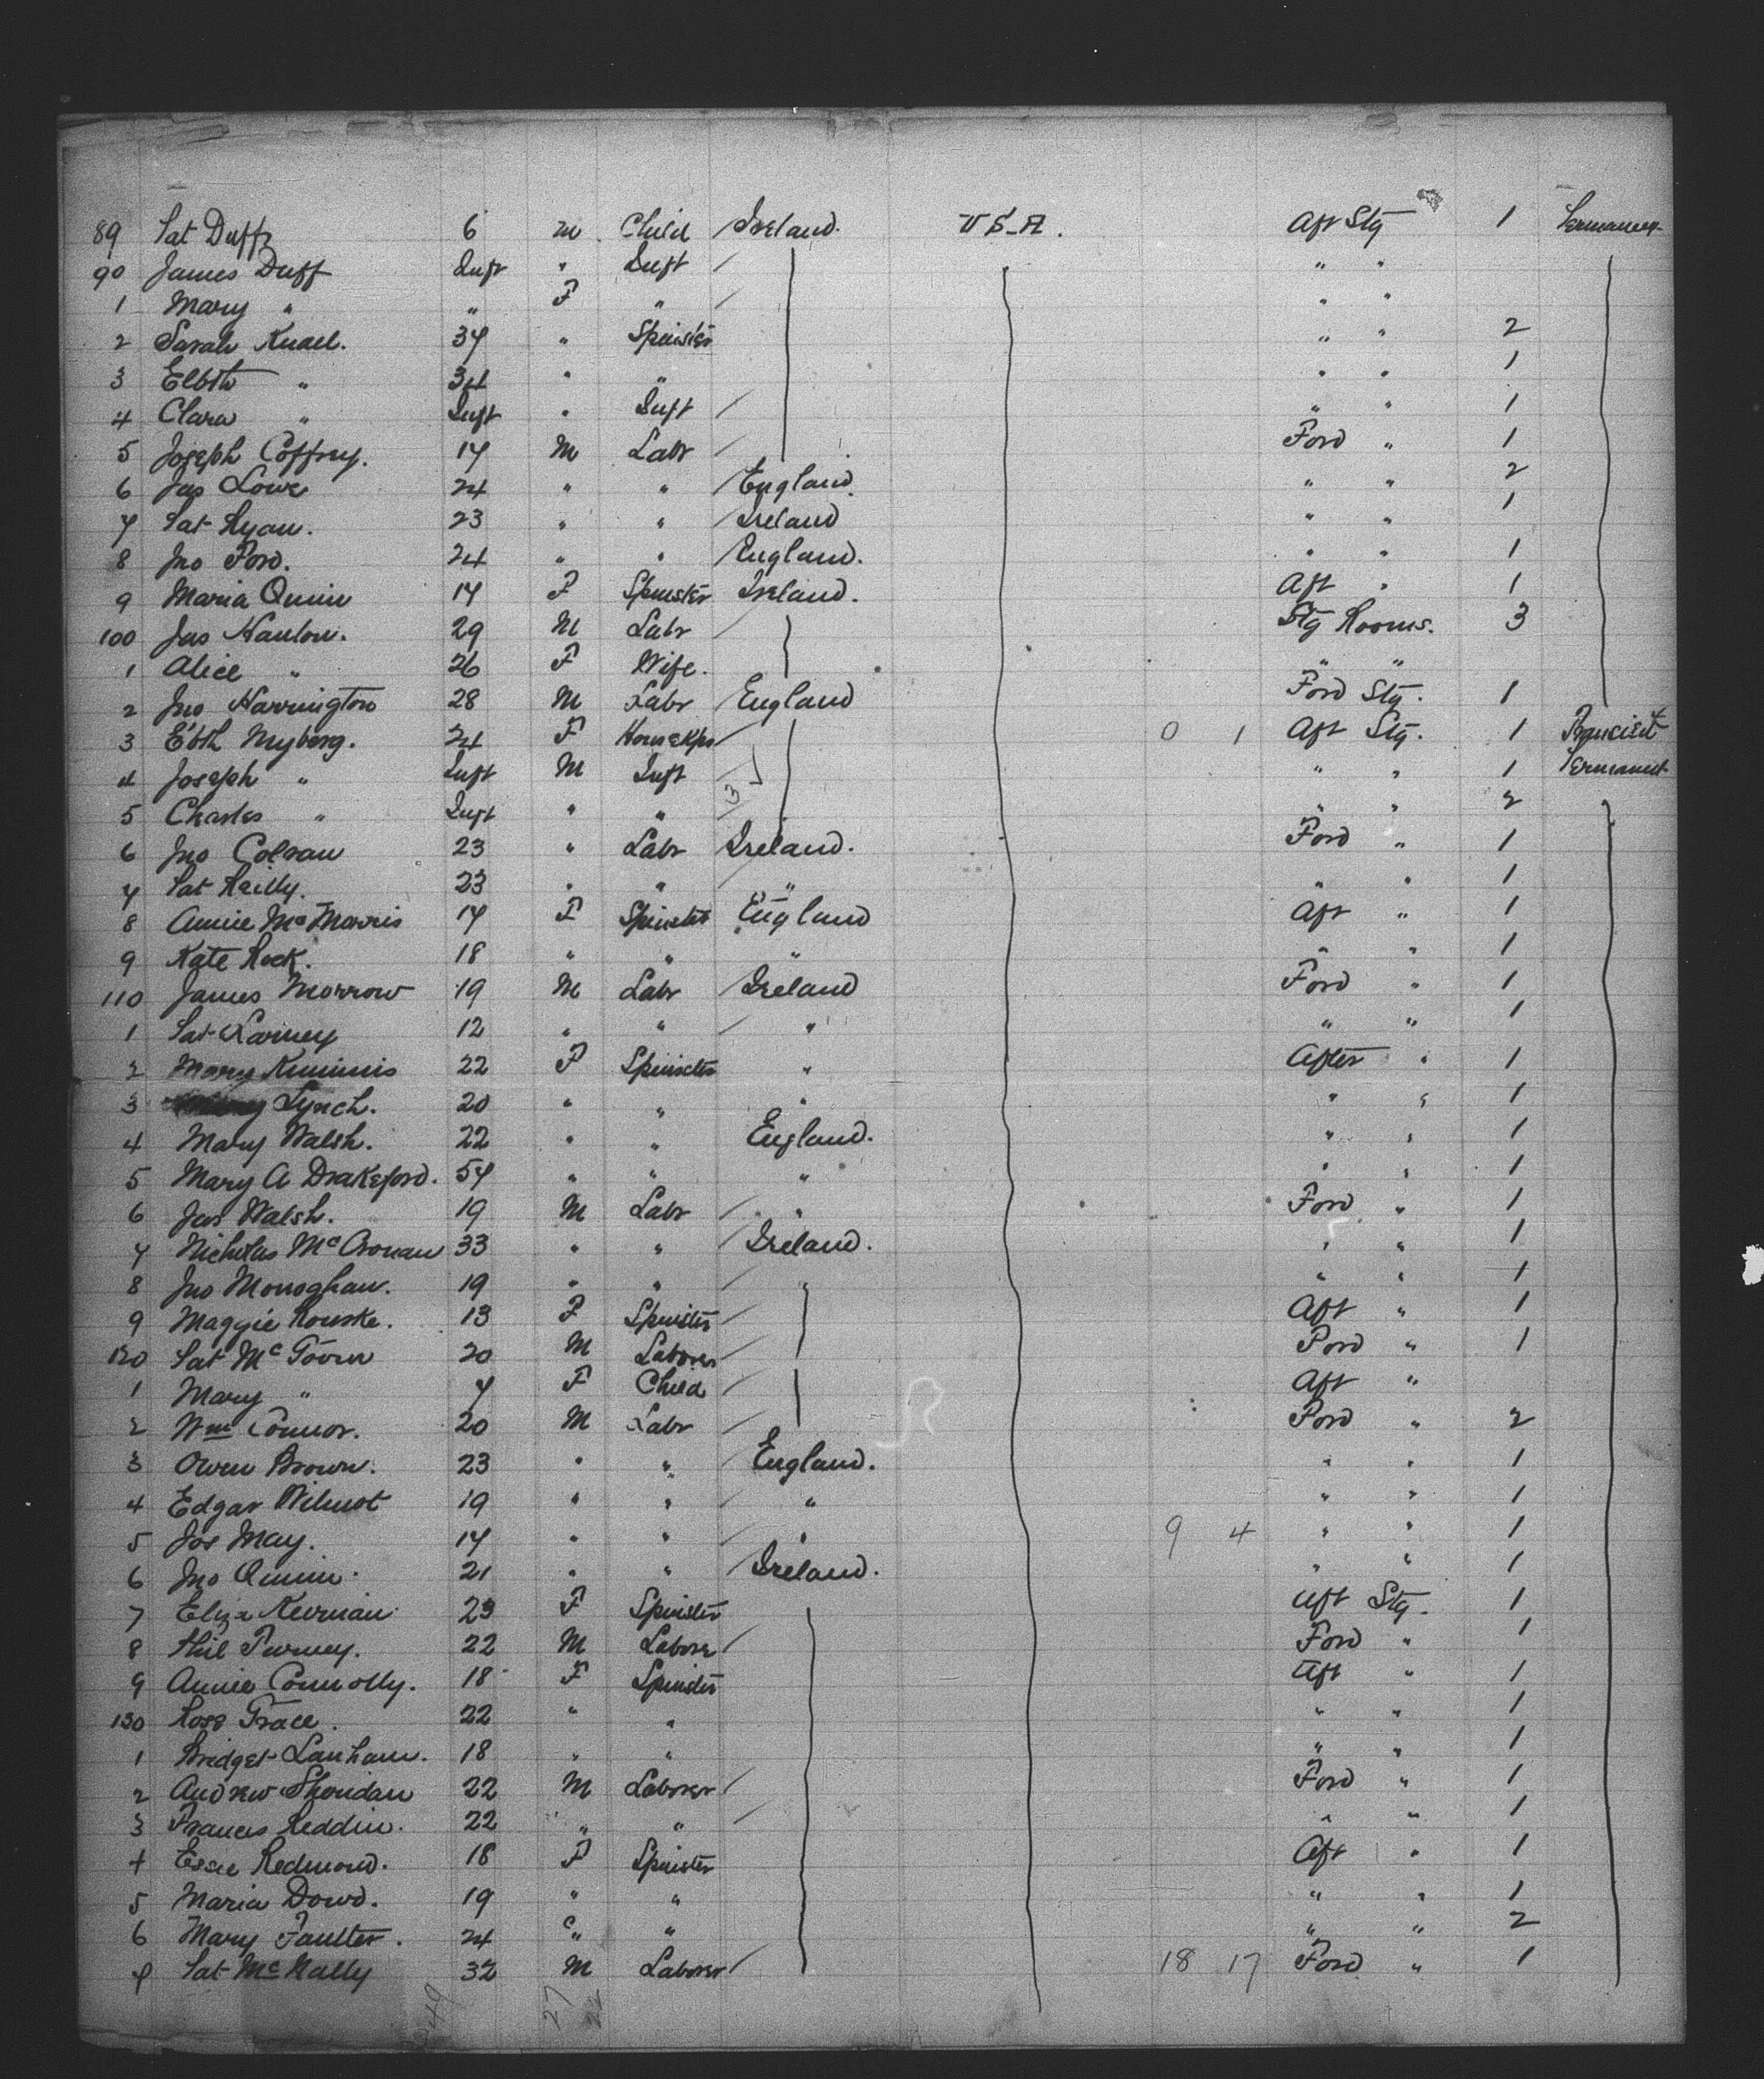 89 Pat Duffy 6 m Child Ireland. U.S.A. Aft Stg 1 Permanent
90 James Duff Inft " Inft / " "
1 Mary " " F " / " "
2 Sarah 34 " Spinster " " 2
3 Elbth " 34 " " " " 1
4 Clara " Inft " Inft / " " 1
5 Joseph Coffrey. 17 M Labr / Ford " 1
6 Jas Lowe 24 " " / England. " " 2
7 Pat Ryan. 23 " " / Ireland " " 1
8 Jno Ford. 24 " " / England. " " 1
9 Maria Quinn 17 F Spinster Ireland. Aft " 1
100 Jas Hanlon. 29 M Labr / Stg Rooms. 3
1 Alice " 26 F Wife. " "
2 Jno Harrington 28 M Labr / England Ford Stg. 1
3 E'bth Nyberg. 24 F Housekpr / 0 1 Aft Stg. 1 Transient
4 Joseph " Inft M Inft / " " 1 Permanent
5 Charles " Inft " " 3 " " 2
6 Jno Colvan 23 " Labr Ireland. Ford " 1
7 Pat Reilly. 23 " " / " " " 1
8 Annie McMorris 17 F Spinster England Aft " 1
9 Kate Rock. 18 " " " " " 1
110 James Morrow 19 M Labr / Ireland Ford " 1
1 Pat Larney 12 " " / " " " 1
2 Mary Kimmis 22 F Spinster " After " 1
3 Lynch. 20 " " " " " 1
4 Mary Walsh. 22 " " England. " " 1
5 Mary A Drakeford. 57 " " " " " 1
6 Jas Walsh. 19 M Labr / " Ford " 1
7 Nicholas McCronan 33 " " / Ireland. " " 1
8 Jno Monoghan. 19 " " / " " 1
9 Maggie Rourke. 13 F Spinster / Aft " 1
120 Pat McGovern 20 M Laborer / Ford " 1
1 Mary " 7 F Child / Aft "
2 Wm Connor. 20 M Labr / Ford " 2
3 Owen Brown. 23 " " / England. " " 1
4 Edgar Wilmot 19 " " / " " " 1
5 Jos May. 17 " " / " 9 4 " " 1
6 Jno Quinn. 21 " " / Ireland. " " 1
7 Eliza Keernan 23 F Spinster Aft Stg. 1
8 Phil Purney. 22 M Laborer / Ford " 1
9 Annie Connolly. 18 F Spinster Aft " 1
130 Rose Grace. 22 " " " " 1
1 Bridget Lanham. 18 " " " " 1
2 Andrew Sheridan 22 M Laborer / Ford " 1
3 Frances Reddin. 22 " " / " " 1
4 Essie Redmond. 18 F Spinster Aft " 1
5 Maria Dowd. 19 " " " " 1
6 Mary Faulter. 24 " " " " 2
7 Pat McNally 32 M Laborer / 18 17 Ford " 1
49 27 22